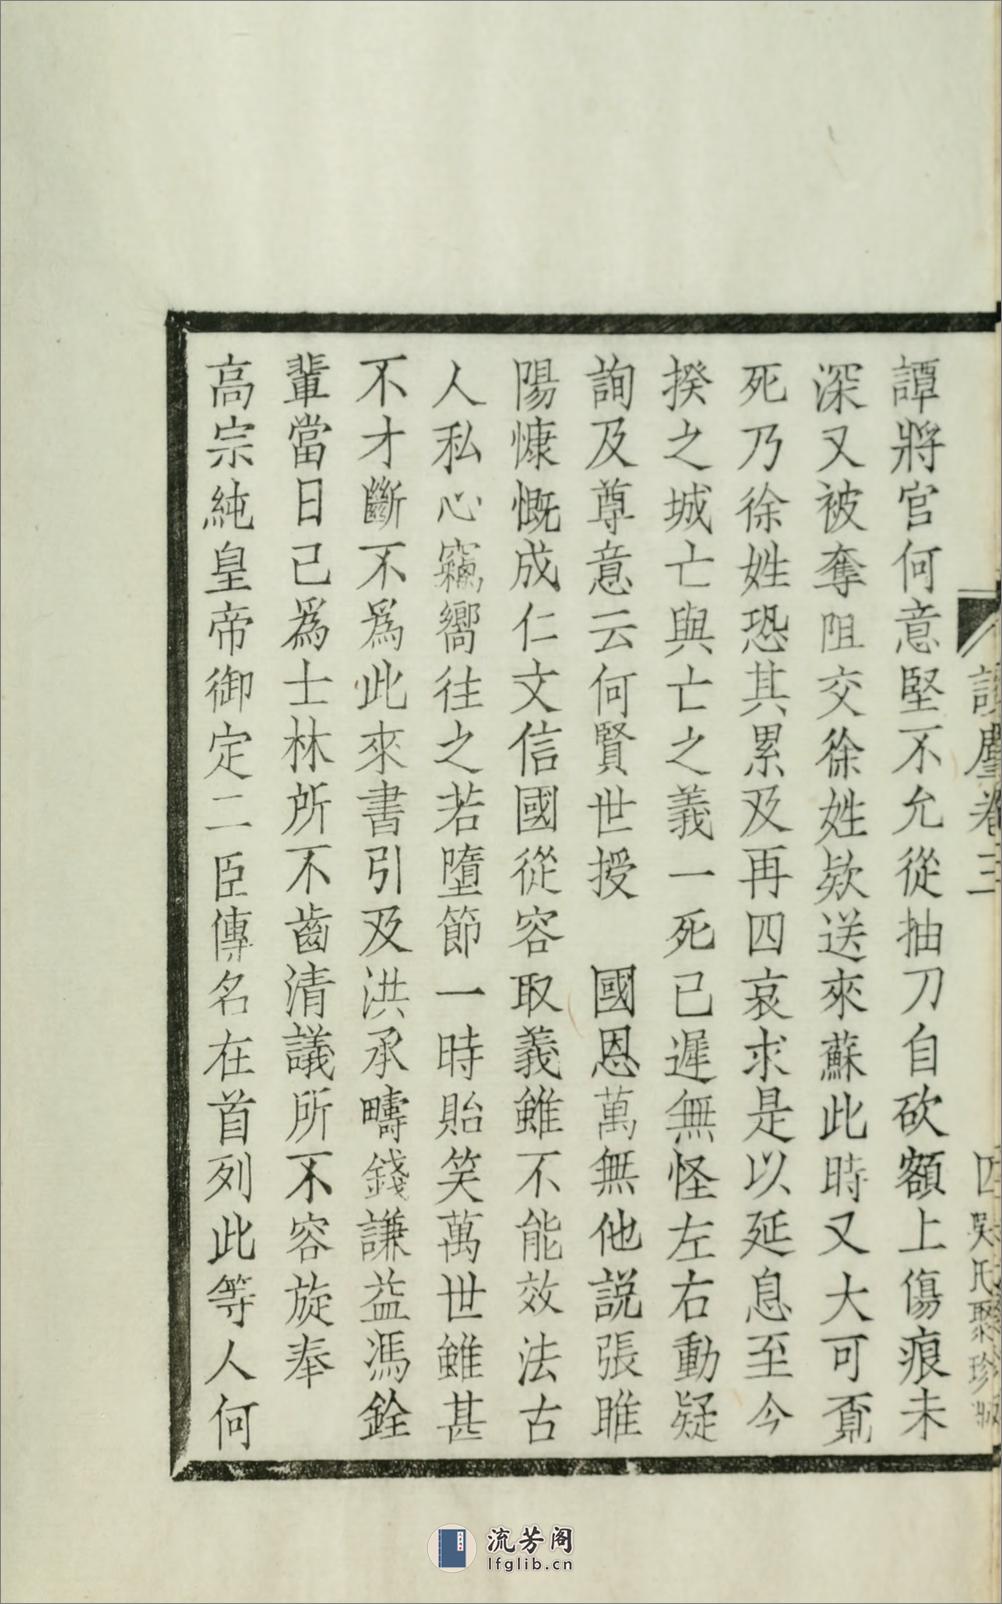 譚將官何意堅不允從抽刀自砍額上傷痕未
深又被奪阻交徐姓欵送來蘇此時又大可覔
死乃徐姓恐其累及再四哀求是以延息至今
揆之城亡與亡之義一死已遲無怪左右動疑
詢及尊意云何賢世授　國恩萬無他説張睢
陽慷慨成仁文信國從容取義雖不能效法古
人私心竊嚮往之若墮節一時貽笑萬世雖甚
不才斷不爲此來書引及洪承疇錢謙益馮銓
輩當日已爲士林所不齒清議所不容旋奉
高宗純皇帝御定二臣傳名在首列此等人何
卷三
吳氏聚珍版
流芳阁
lfglib.cn